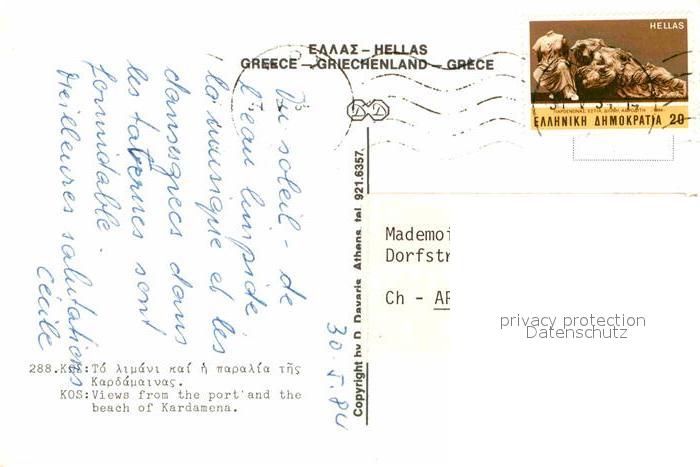 ΕΛΛΑΣ – HELLAS
GREECE – GRIECHENLAND – GRÈCE
HELLAS
ΕΛΛΗΝΙΚΗ ΔΗΜΟΚΡΑΤΙΑ 20
Du soleil - de
l'eau limpide
la musique et les
danses grecs dans
les tavernes sont
formidable
Meilleures salutations
Cécile
30.5.84
Copyright by D. Davaris, Athens, tel. 921.6357
Mademoi
Dorfstr
Ch - AP
privacy protection
Datenschutz
288.ΚΩΣ:Τό λιμάνι καί ἡ παραλία τῆς
Καρδάμαινας.
KOS:Views from the port and the
beach of Kardamena.